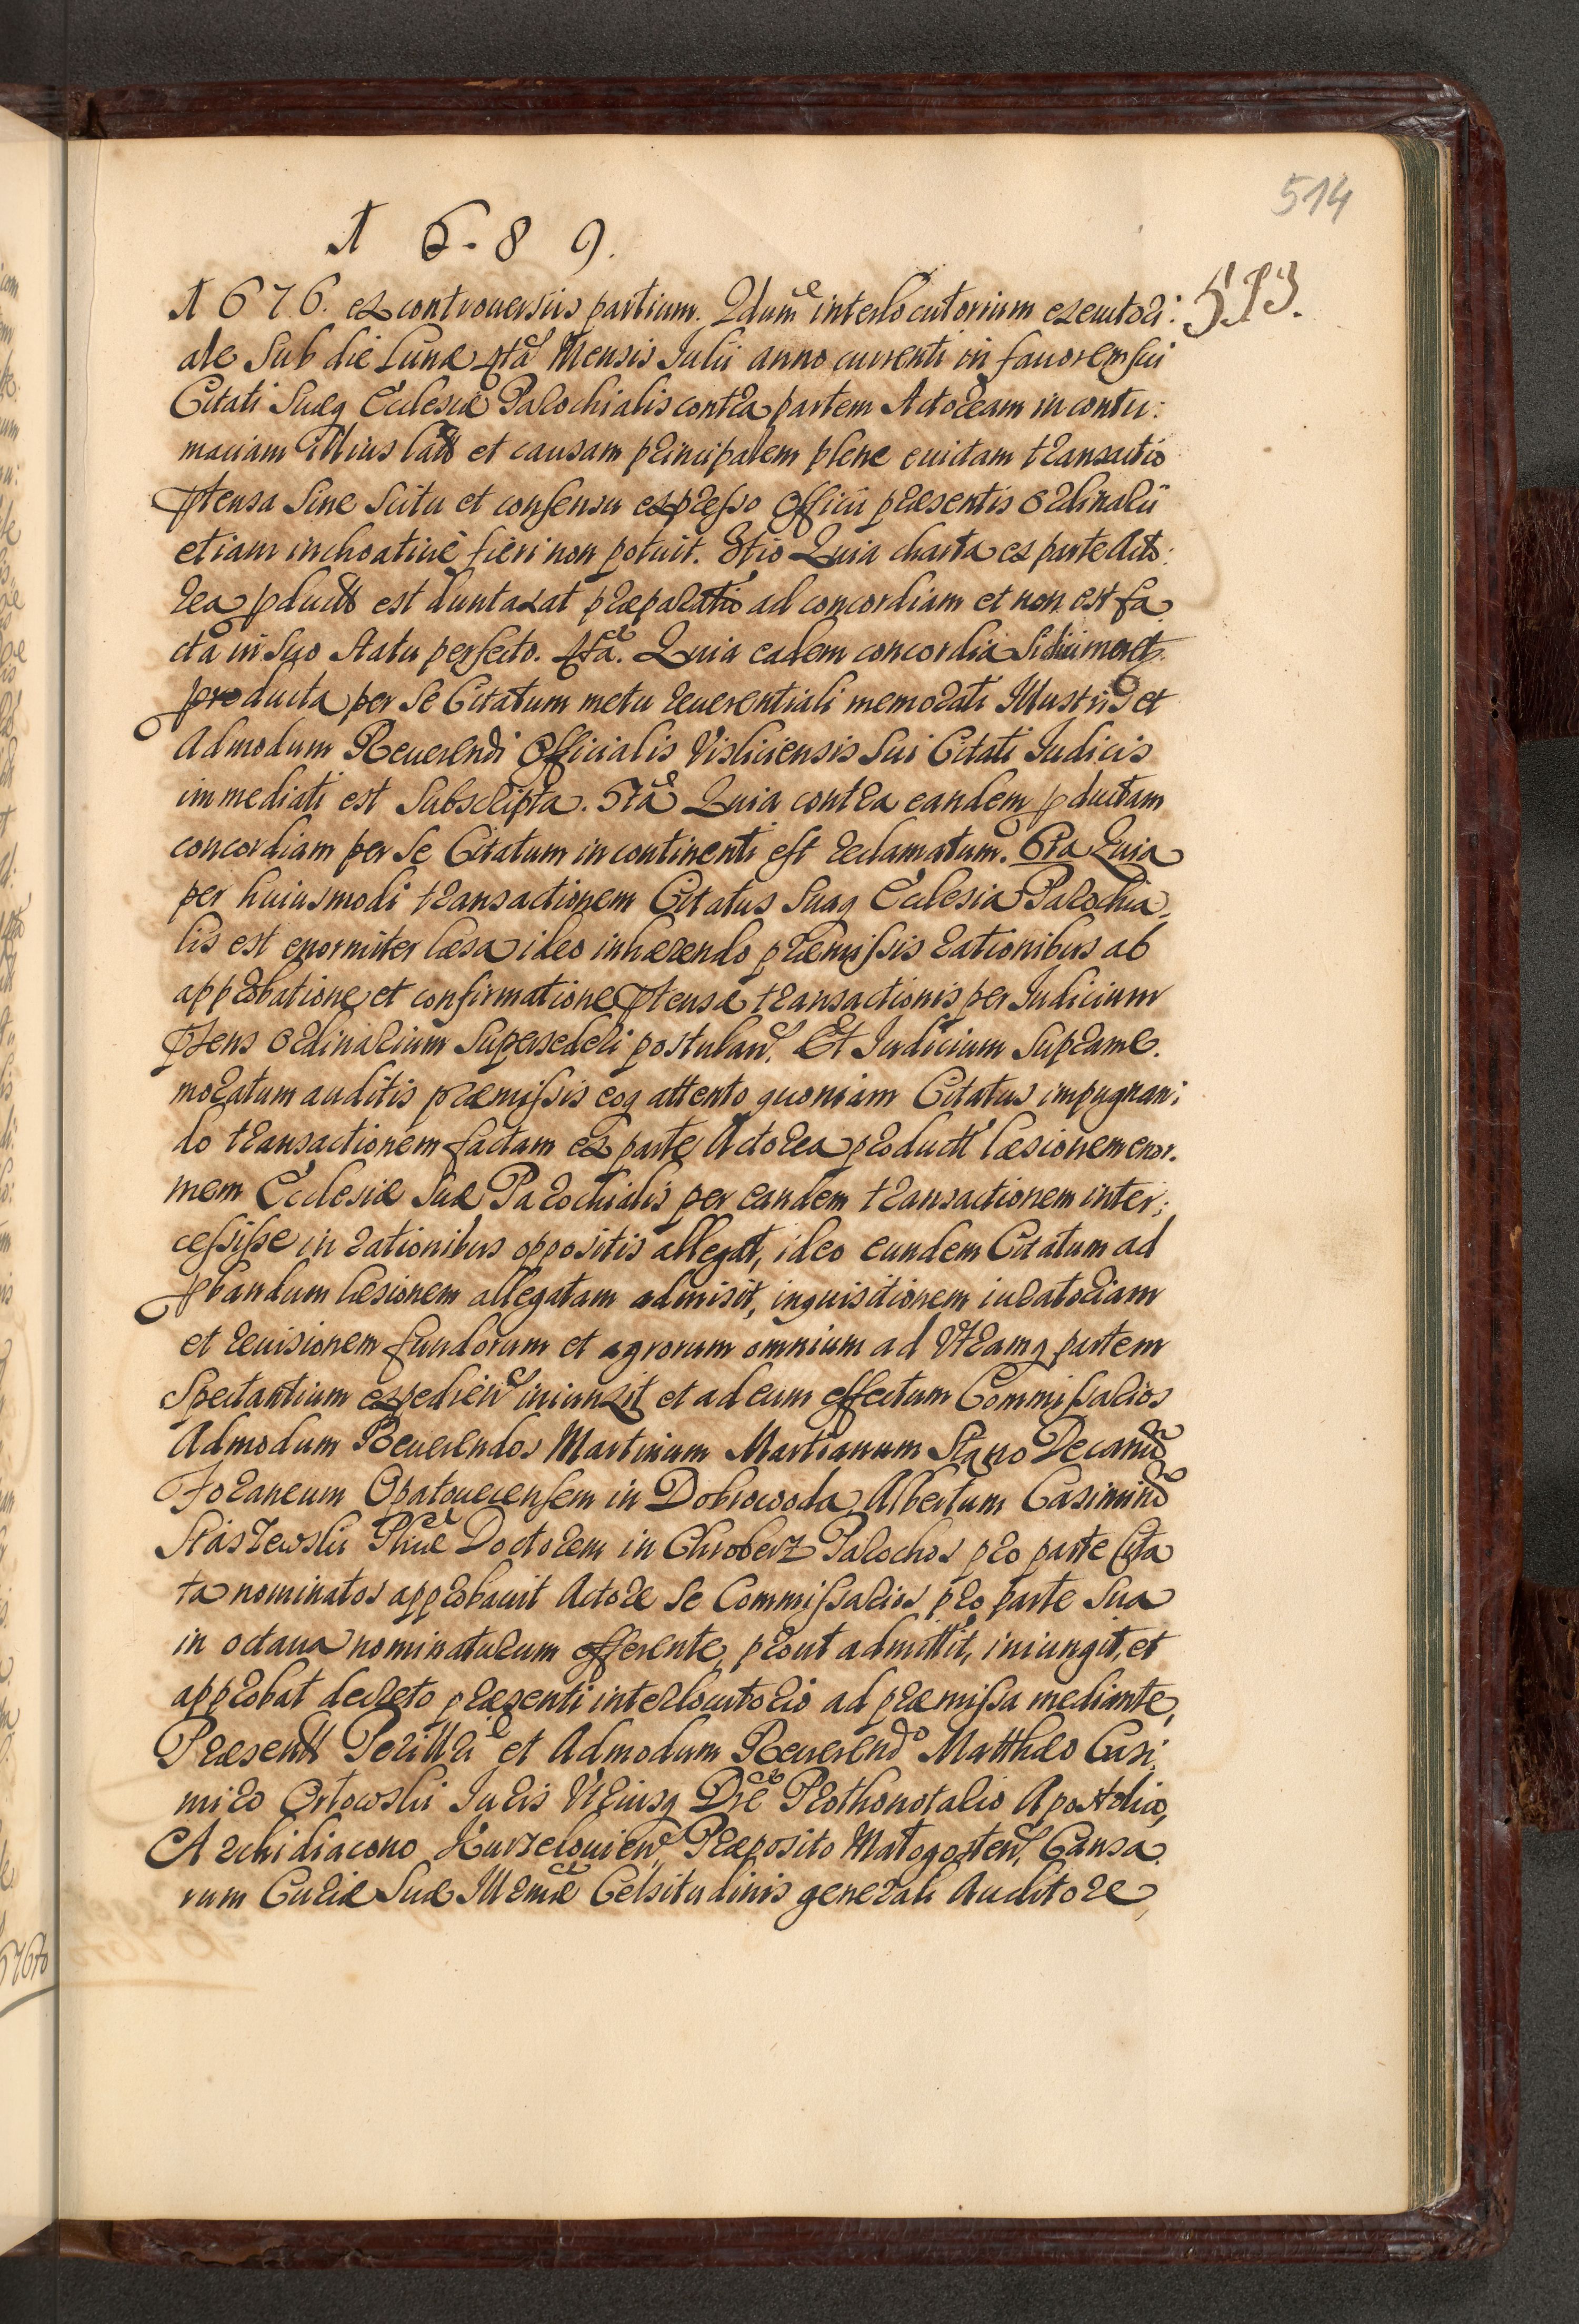 514
1 6 8 9.
513.
1676. ex controuersiis partium. 2dum interlocutorium executori:
ale Sub die Lunæ 4ta Mensis Julii anno currenti in fauorem sui
Citati Suæq Ecclesiæ Parochialis contra partem Actoream in contu:
maciam illius latt et causam principalem plene euictam transactio
ptensa Sine Scitu et consensu expresso Officii præsentis Ordinarii
etiam inchoatiue fieri non potuit. 3tio Quia charta ex parte Acto:
rea pductt est duntaxat præparatio ad concordiam et non est fa
cta in Suo Statu perfecto. 4ta. Quia eadem concordia
producta per Se Citatum metu reuerentiali memorati Illustris et
Admodum Reuerendi Officialis Visliciensis Sui Citati Judicis
immediati est Subscripta. 5ta Quia contra eandem pductam
concordiam per Se Citatum in continenti est reclamatum. 6ta Quia
per huiusmodi transactionem Citatus Suaq Ecclesia Parochia
lis est enormiter læsa ideo inhærendo præmissis rationibus ab
approbatione et confirmatione ptensæ transactionis per Judicium
ptens Ordinarium Supersederi postulauit. Et Judicium Suprame.
moratum auditis præmissis eoq attento quoniam Citatus impugnan:
do transactionem factam ex parte Actorea productt læsionem enor.
mem Ecclesiæ Suæ Parochialis per eandem transactionem inter:
cessisse in rationibus oppositis allegat, ideo eundem Citatum ad
pbandum læsionem allegatam admisit, inquisitionem iuratoriam
et reuisionem fundorum et agrorum omnium ad Vtramq partem
Spectantium expedien iniunxit et ad eum effectum Commissarios
Admodum Reuerendos Martinum Martianum Stano Decanum
Foraneum Opatouecensem in Dobrowoda, Albertum Casimirum
Staszewski Phiæ Doctorem in Chroberz Parochos pro parte Cita
ta nominatos approbauit Actore Se Commissarios pro parte Sua
in octaua nominaturum offerente, prout admittit, iniungit, et
approbat decreto præsenti interlocutorio ad præmissa mediante,
Præsentt Perillri et Admodum Reuerendo Matthæo Casi:
miro Orłowski Juris Vtriusq Dre Prothonotario Apostolico,
Archidiacono Kurzelouien, Præposito Małogosten, Causa
rum Curiæ Suæ Illrmæ Celsitudinis generali Auditore,